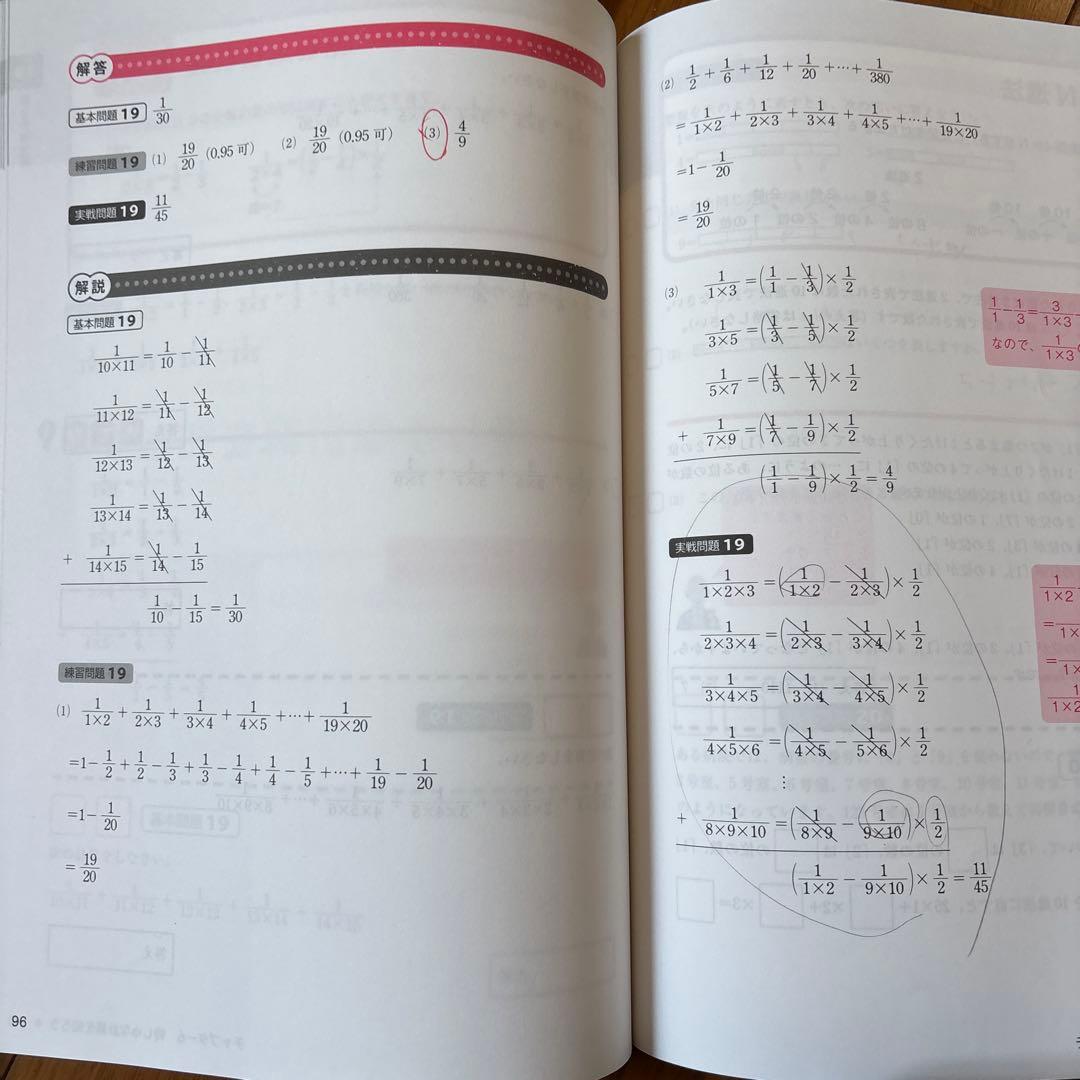 解答
基本問題 19 1/30
練習問題 19 (1) 19/20 (0.95 可) (2) 19/20 (0.95 可) (3) 4/9
実戦問題 19 11/45
解説
基本問題 19
1/(10×11) = 1/10 − 1/11
1/(11×12) = 1/11 − 1/12
1/(12×13) = 1/12 − 1/13
1/(13×14) = 1/13 − 1/14
+ 1/(14×15) = 1/14 − 1/15
1/10 − 1/15 = 1/30
練習問題 19
(1) 1/(1×2) + 1/(2×3) + 1/(3×4) + 1/(4×5) + ⋯ + 1/(19×20)
=1− 1/2 + 1/2 − 1/3 + 1/3 − 1/4 + 1/4 − 1/5 + ⋯ + 1/19 − 1/20
=1− 1/20
= 19/20
96
(2) 1/2 + 1/6 + 1/12 + 1/20 + ⋯ + 1/380
= 1/(1×2) + 1/(2×3) + 1/(3×4) + 1/(4×5) + ⋯ + 1/(19×20)
=1− 1/20
= 19/20
(3) 1/(1×3) = (1/1 − 1/3) × 1/2
1/(3×5) = (1/3 − 1/5) × 1/2
1/(5×7) = (1/5 − 1/7) × 1/2
+ 1/(7×9) = (1/7 − 1/9) × 1/2
(1/1 − 1/9) × 1/2 = 4/9
1/1 − 1/3 = 3/(1×3)
なので、 1/(1×3)
実戦問題 19
1/(1×2×3) = (1/(1×2) − 1/(2×3)) × 1/2
1/(2×3×4) = (1/(2×3) − 1/(3×4)) × 1/2
1/(3×4×5) = (1/(3×4) − 1/(4×5)) × 1/2
1/(4×5×6) = (1/(4×5) − 1/(5×6)) × 1/2
⋮
+ 1/(8×9×10) = (1/(8×9) − 1/(9×10)) × 1/2
(1/(1×2) − 1/(9×10)) × 1/2 = 11/45